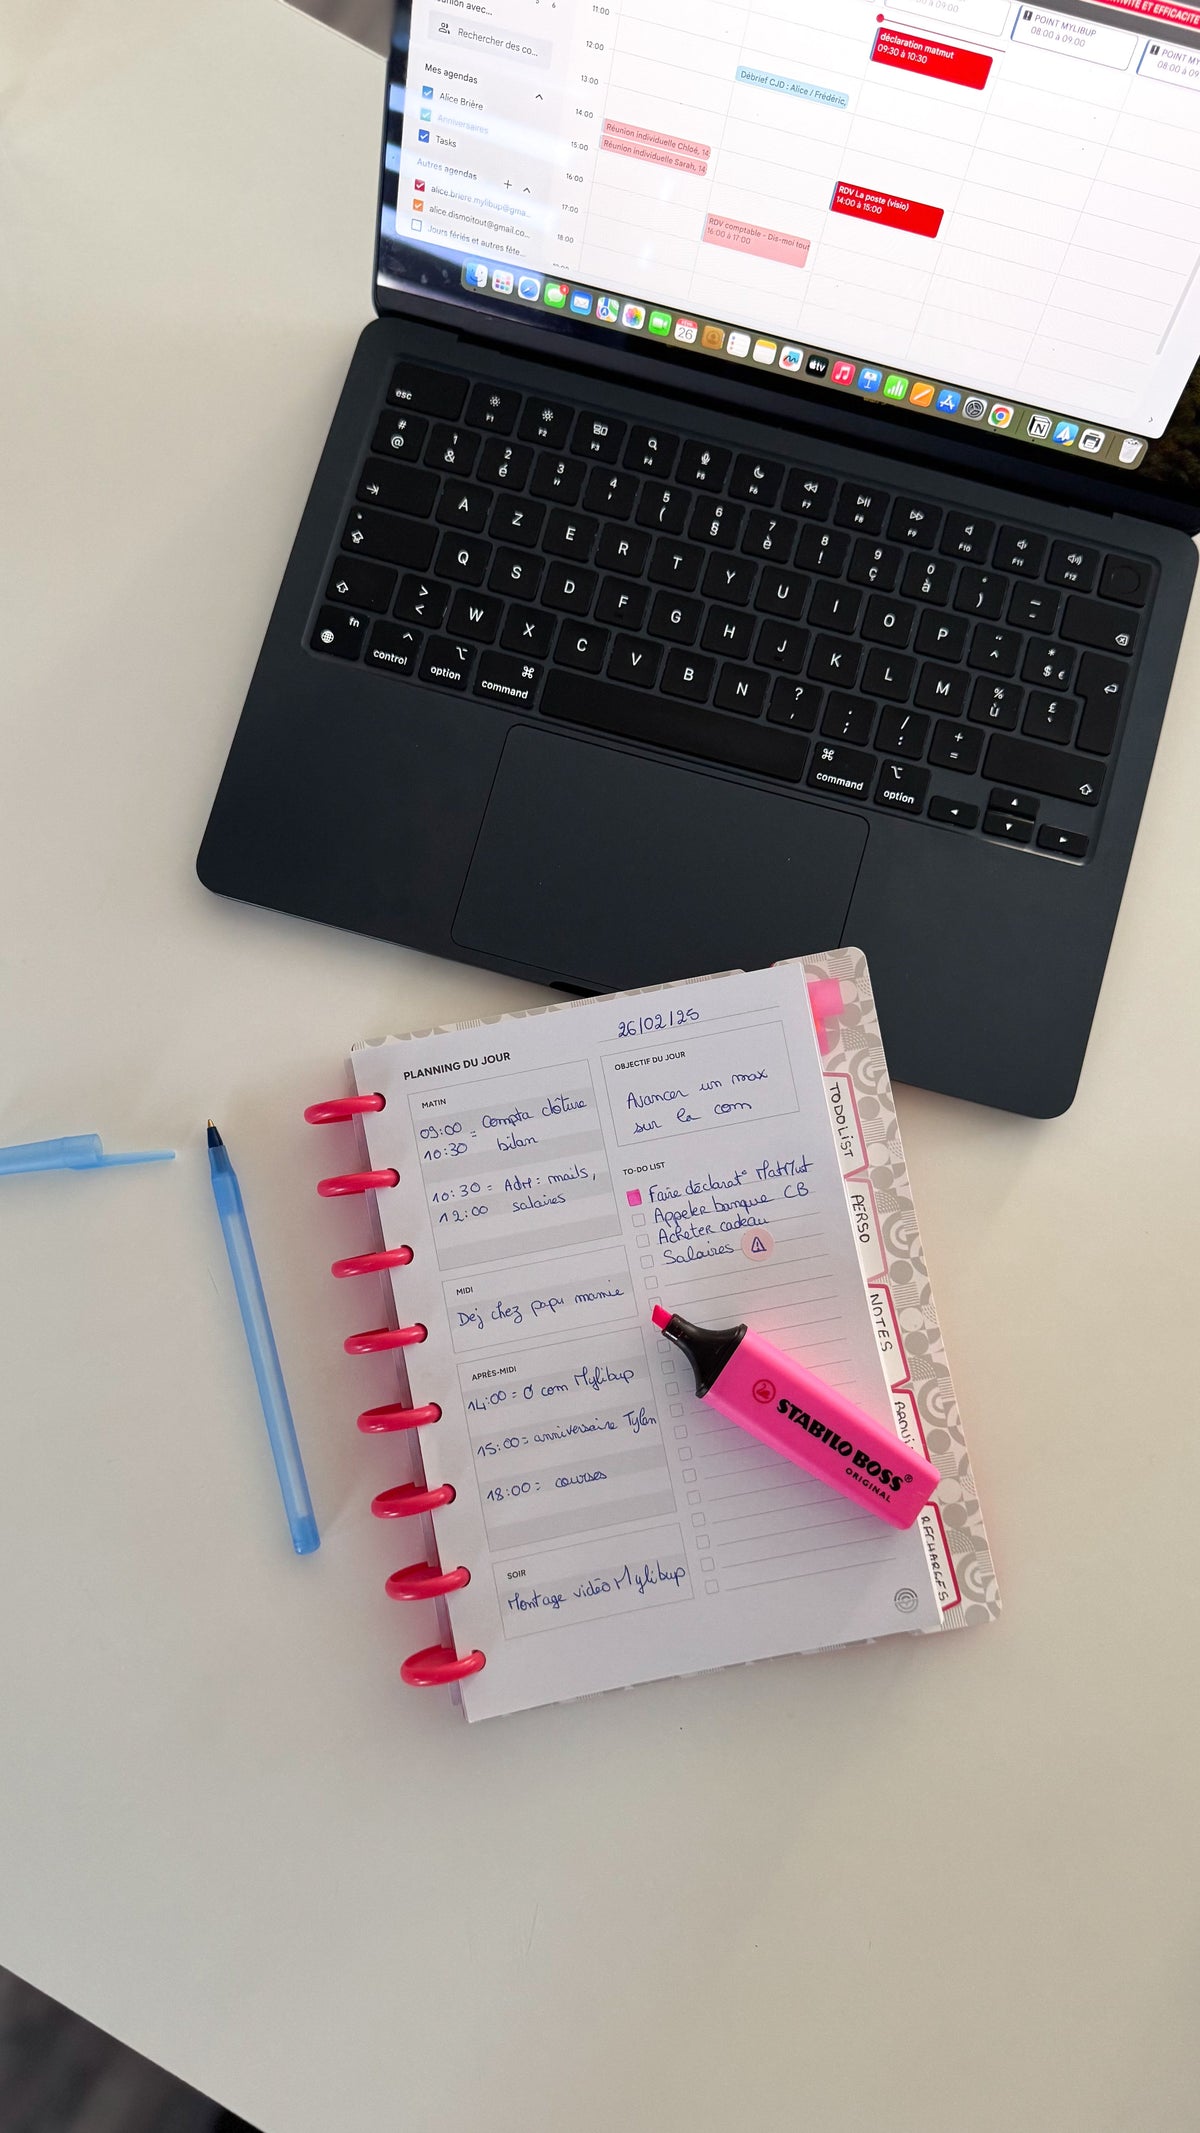 union avec...
Rechercher des co...
Mes agendas
Alice Brière
Anniversaires
Tasks
Autres agendas
alice.briere.mylibup@gma...
alice.dismoitout@gmail.co...
Jours fériés et autres fête...
11:00
12:00
13:00
14:00
15:00
16:00
17:00
18:00
Réunion individuelle Chloé, 14
Réunion individuelle Sarah, 14
RDV comptable - Dis-moi tout
16:00 à 17:00
Débrief CJD : Alice / Frédéric,
déclaration matmut
09:30 à 10:30
RDV La poste (visio)
14:00 à 15:00
à 09:00
POINT MYLIBUP
08:00 à 09:00
POINT MY
08:00 à 09
ET EFFICACITE
26
tv
esc
F1
F2
F3
F4
F5
F6
F7
F8
F9
F10
F11
F12
# 1 2 3 4 5 6 7 8 9 0 ° _
@ & é " ' ( § è ! ç à ) -
A Z E R T Y U I O P ¨ *
^ $ €
Q S D F G H J K L M % £
ù `
> W X C V B N ? . / +
< , ; : =
fn control option command command option
26/02/25
PLANNING DU JOUR
MATIN
09:00 = Compta clôture
10:30 bilan
10:30 = Adm : mails,
12:00 salaires
MIDI
Dej chez papu mamie
APRÈS-MIDI
14:00 = com Mylibup
15:00 = anniversaire Tylan
18:00 = courses
SOIR
Montage vidéo Mylibup
OBJECTIF DU JOUR
Avancer un max
sur la com
TO-DO LIST
Faire déclarat° MatMut
Appeler banque CB
Acheter cadeau
Salaires
TODOLIST
PERSO
NOTES
RECHARGES
STABILO BOSS®
ORIGINAL